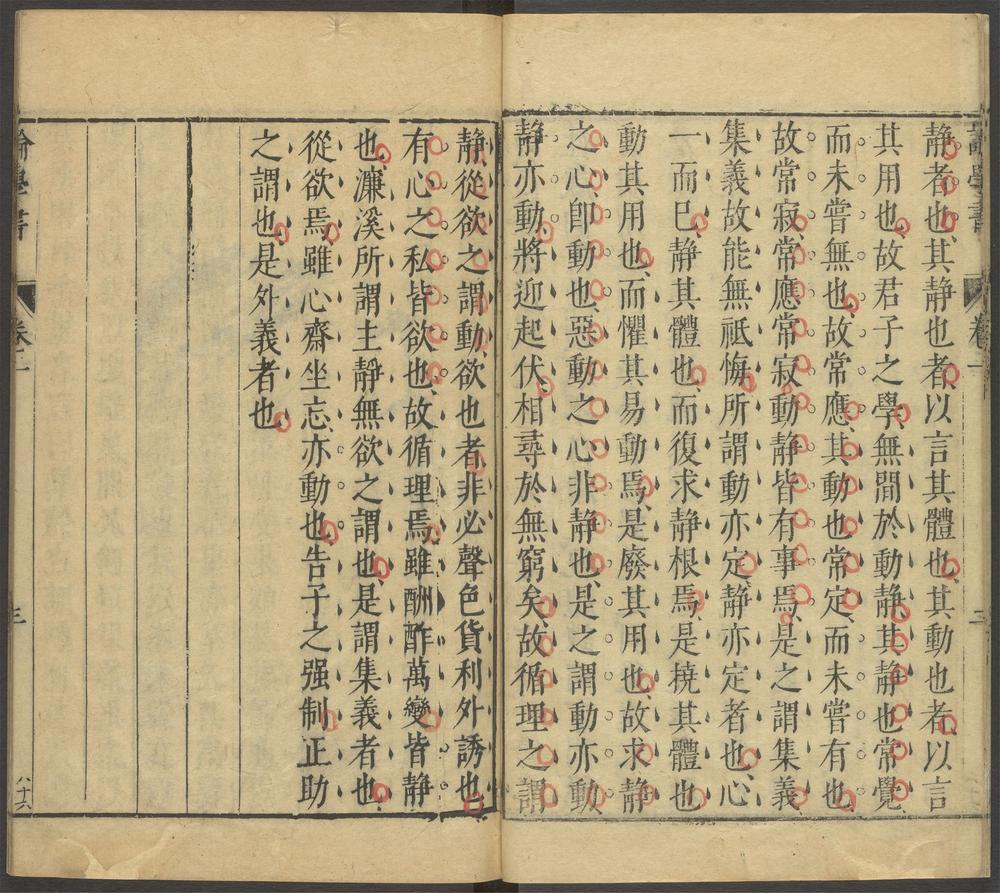 静者也其静也者以言其體也其動也者以言
其用也故君子之學無間於動静其静也常覺
而未嘗無也故常應其動也常定而未嘗有也
故常寂常應常寂動静皆有事焉是之謂集義
集義故能無祗悔所謂動亦定静亦定者也心
一而已静其體也而復求静根焉是撓其體也
動其用也而懼其易動焉是廢其用也故求静
之心即動也惡動之心非静也是之謂動亦動
静亦動將迎起伏相尋於無窮矣故循理之謂
静從欲之謂動欲也者非必聲色貨利外誘也
有心之私皆欲也故循理焉雖酬酢萬變皆静
也濂溪所謂主靜無欲之謂也是謂集義者也
從欲焉雖心齋坐忘亦動也告子之强制正助
之謂也是外義者也
論學書
卷二
三
八十六